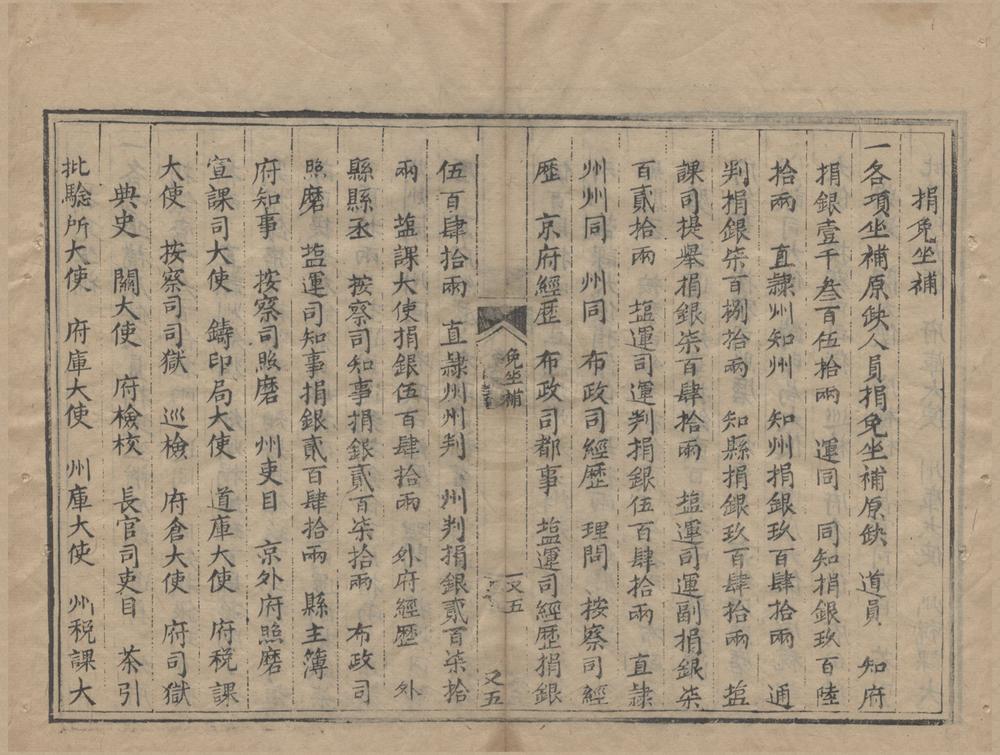 捐免坐補
一各項坐補原缺人員捐免坐補原缺　道員　知府
捐銀壹千叁百伍拾兩　運同　同知捐銀玖百陸
拾兩　直隸州知州　知州捐銀玖百肆拾兩　通
判捐銀柒百捌拾兩　知縣捐銀玖百肆拾兩　塩
課司提舉捐銀柒百肆拾兩　塩運司運副捐銀柒
百貳拾兩　塩運司運判捐銀伍百肆拾兩　直隸
州州同　州同　布政司經歷　理問　按察司經
歷　京府經歷　布政司都事　塩運司經歷捐銀
免坐補
又五
又五
伍百肆拾兩　直隸州州判　州判捐銀貳百柒拾
兩　塩課大使捐銀伍百肆拾兩　外府經歷　外
縣縣丞　按察司知事捐銀貳百柒拾兩　布政司
照磨　塩運司知事捐銀貳百肆拾兩　縣主簿
府知事　按察司照磨　州吏目　京外府照磨
宣課司大使　鑄印局大使　道庫大使　府税課
大使　按察司司獄　巡檢　府倉大使　府司獄
典史　關大使　府檢校　長官司吏目　茶引
批驗所大使　府庫大使　州庫大使　州税課大